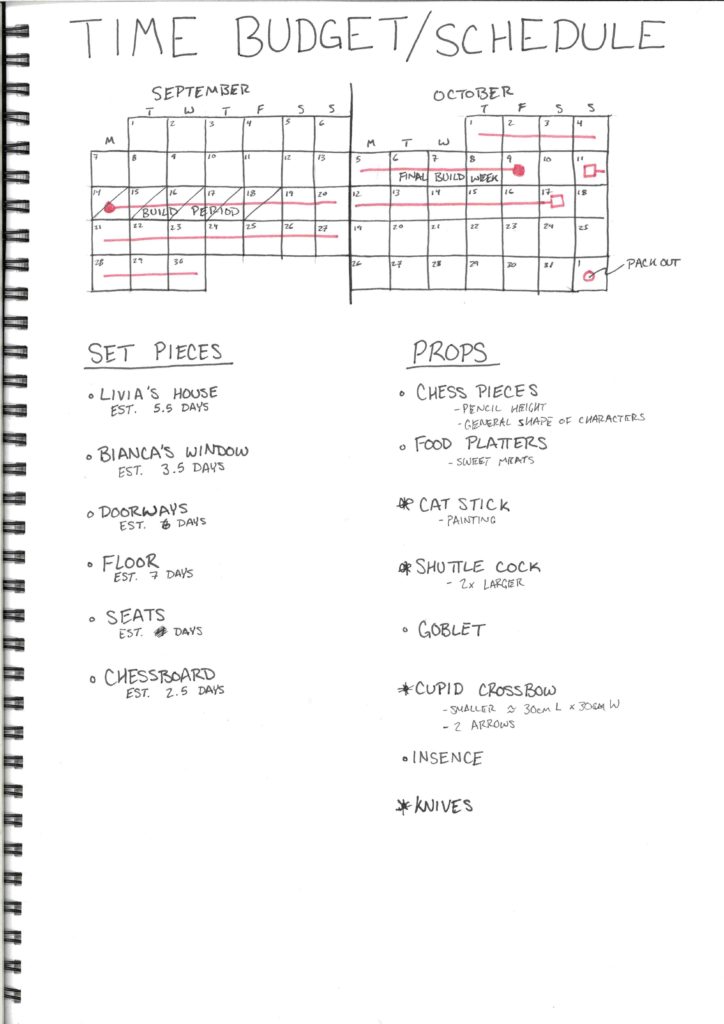 TIME BUDGET/SCHEDULE
SEPTEMBER
T W T F S S
M
1 2 3 4 5 6
7 8 9 10 11 12 13
14 15 16 17 18 19 20
BUILD PERIOD
21 22 23 24 25 26 27
28 29 30
OCTOBER
T F S S
M T W
1 2 3 4
5 6 7 8 9 10 11
FINAL BUILD WEEK
12 13 14 15 16 17 18
19 20 21 22 23 24 25
26 27 28 29 30 31 1
PACK OUT
SET PIECES
LIVIA'S HOUSE
EST. 5.5 DAYS
BIANCA'S WINDOW
EST. 3.5 DAYS
DOORWAYS
EST. DAYS
FLOOR
EST. 7 DAYS
SEATS
EST. DAYS
CHESSBOARD
EST. 2.5 DAYS
PROPS
CHESS PIECES
- PENCIL HEIGHT
- GENERAL SHAPE OF CHARACTERS
FOOD PLATTERS
- SWEET MEATS
* CAT STICK
- PAINTING
* SHUTTLE COCK
- 2x LARGER
GOBLET
* CUPID CROSSBOW
- SMALLER ≈ 30cm L x 30cm W
- 2 ARROWS
INSENCE
* KNIVES